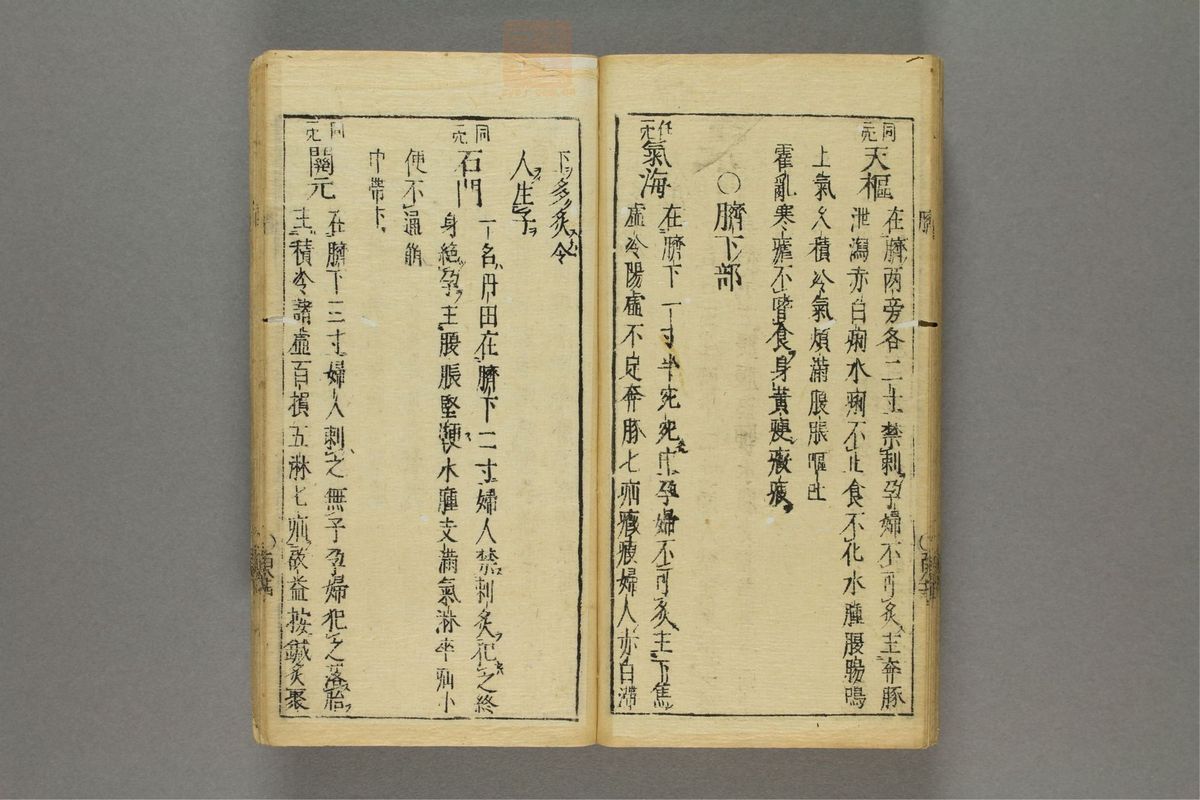 同
穴
天樞
在臍兩旁各二寸禁刺孕婦不可灸主奔豚
泄瀉赤白痢水痢不止食不化水腫腹腸鳴
上氣久積冷氣煩滿腹脹嘔吐
霍亂寒瘧不嗜食身黃
○臍下部
任
穴
氣海
在臍下一寸半宛宛中孕婦不可灸主下焦
虛冷陽虛不足奔豚七疝癥瘕婦人赤白滯
下多灸令
人生子
同
穴
石門
一名丹田在臍下二寸婦人禁刺灸犯之終
身絕孕主腹脹堅鞕水腫支滿氣淋卒疝小
便不通
中帶下
同
穴
關元
在臍下三寸婦人刺之無子孕婦犯之落胎
主積冷諸虛百損五淋七疝故益按鍼灸聚